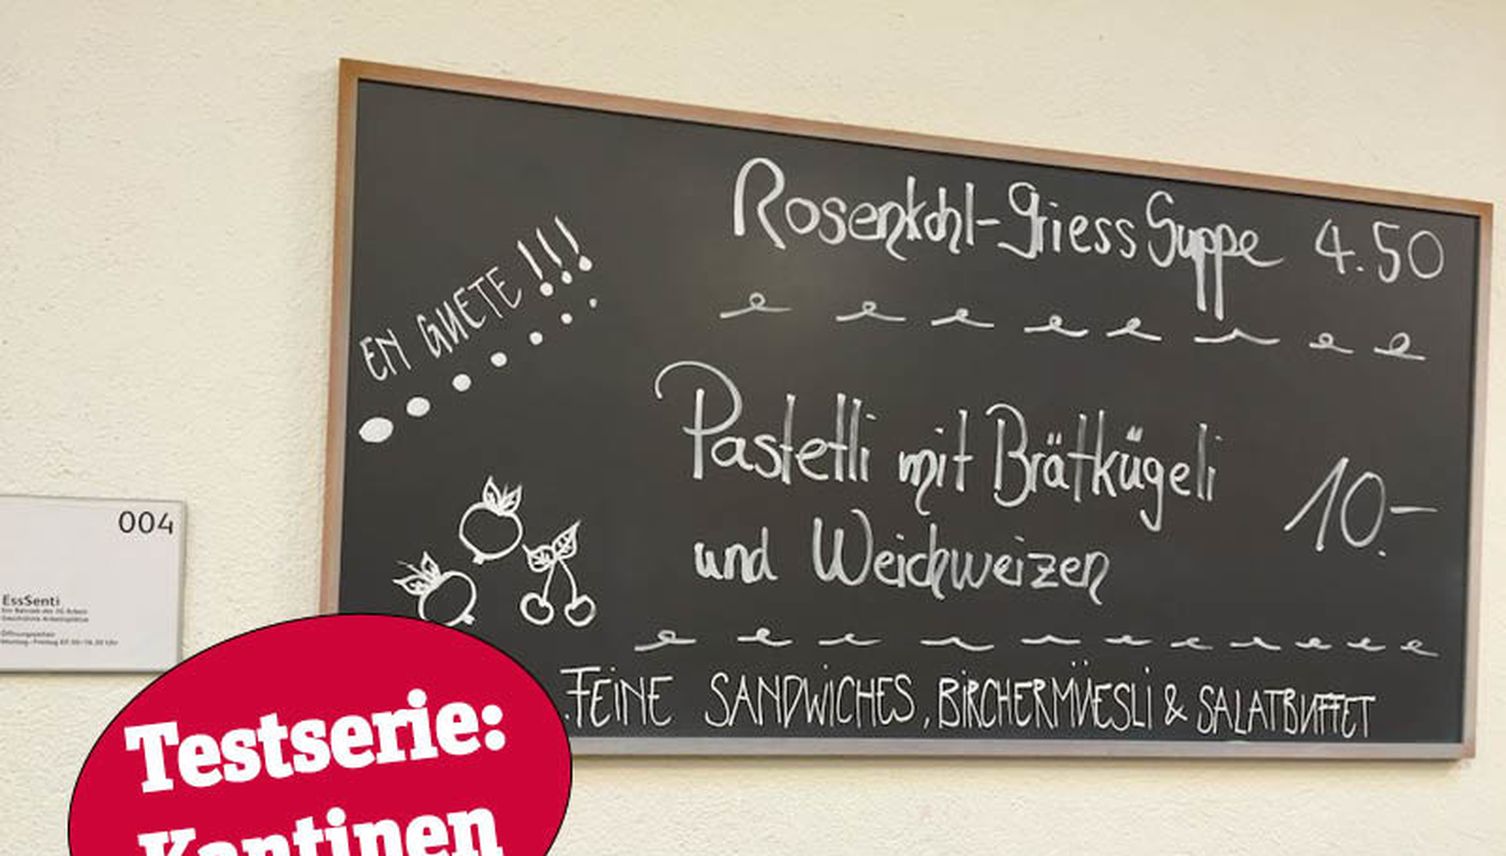 Rosenkohl-Griess Suppe 4.50
EN GUETE !!!
Pastetli mit Brätkügeli 10.-
und Weichweizen
FEINE SANDWICHES, BIRCHERMÜESLI & SALATBUFFET
004
EssSenti
Testserie:
Kantinen